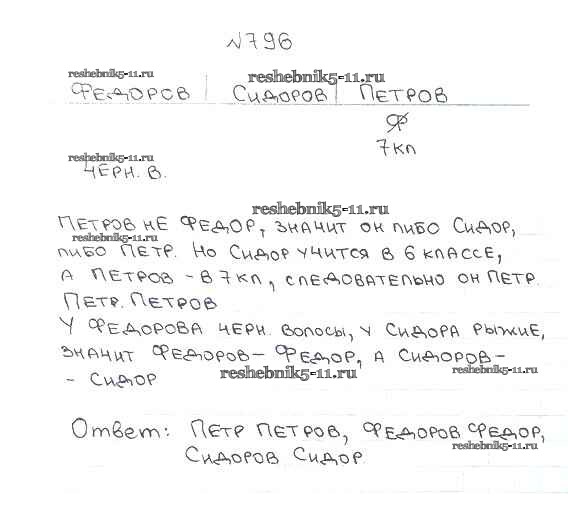 №796
reshebnik5-11.ru reshebnik5-11.ru
ФЕДОРОВ | СИДОРОВ | ПЕТРОВ
Ф
7кл
reshebnik5-11.ru
ЧЕРН. В.
reshebnik5-11.ru
ПЕТРОВ НЕ ФЕДОР, ЗНАЧИТ ОН ЛИБО СИДОР,
reshebnik5-11.ru
ЛИБО ПЕТР. НО СИДОР УЧИТСЯ В 6 КЛАССЕ,
А ПЕТРОВ - В 7 КЛ, СЛЕДОВАТЕЛЬНО ОН ПЕТР.
ПЕТР. ПЕТРОВ
У ФЕДОРОВА ЧЕРН. ВОЛОСЫ, У СИДОРА РЫЖИЕ,
ЗНАЧИТ ФЕДОРОВ - ФЕДОР, А СИДОРОВ -
- СИДОР
reshebnik5-11.ru reshebnik5-11.ru
Ответ: ПЕТР ПЕТРОВ, ФЕДОРОВ ФЕДОР,
reshebnik5-11.ru
СИДОРОВ СИДОР.